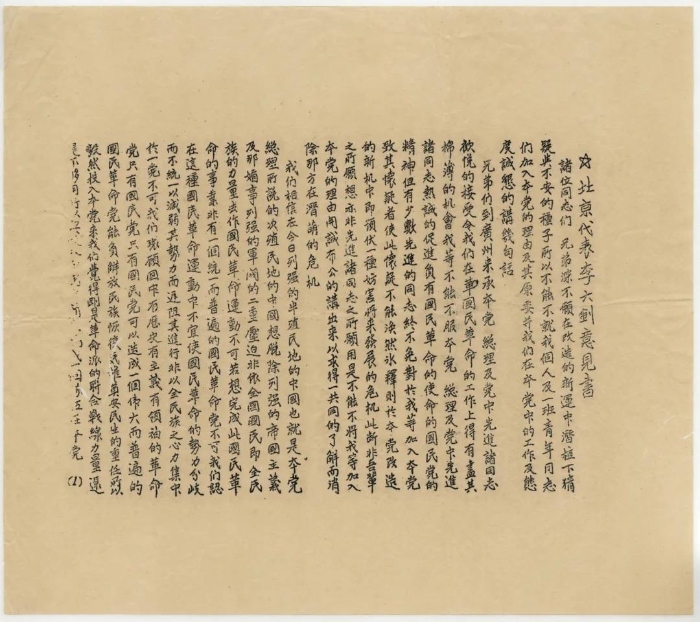 北京代表李大釗意見書
諸位同志們 兄弟深不願在改造的新運中潛植下猜
疑與不安的種子所以不能不就我個人及一班青年同志
們加入本黨的理由及其原委并我們在本黨中的工作及態
度誠懇的講幾句話
兄弟們到廣州來承本黨 總理及黨中先進諸同志
歡悅的接受令我們在國民革命的工作上得有盡其
棉薄的機會我等不能不服本黨 總理及黨中先進
諸同志熱誠的促進負有國民革命的使命的國民黨的
精神但有少數先進的同志終不免對於我等加入本黨
致其懷疑者使此懷疑不能渙然冰釋則於本黨改造
的新机中即預伏一種妨害將來發展的危机此斷非吾輩
之所願想亦非先進諸同志之所願用是不能不將我等加入
本黨的理由開誠布公的講出來以求得一共同的了解而消
除那方在潛萌的危机
我們相信在今日列强的半殖民地的中國也就是本黨
總理所說的次殖民地的中國想脫除列强的帝國主義
及那媚事列强的軍閥的二重壓迫非依全國國民即全民
族的力量去作國民革命運動不可若想完成此國民革
命的事業非有一個統一而普遍的國民革命黨不可我們認
在這種國民革命運動中不宜使國民革命的勢力分歧
而不統一以減弱其勢力而遲阻其進行非以全民族之心力集中
於一黨不可我們環顧國中有歷史有主義有領袖的革命
黨只有國民黨只有國民黨可以造成一個偉大而普遍的
國民革命黨能負解放民族恢復民權奠安民生的重任所以
毅然投入本黨來我們覺得剛是革命派的聯合戰線力量還
是不够用 本黨
(1)